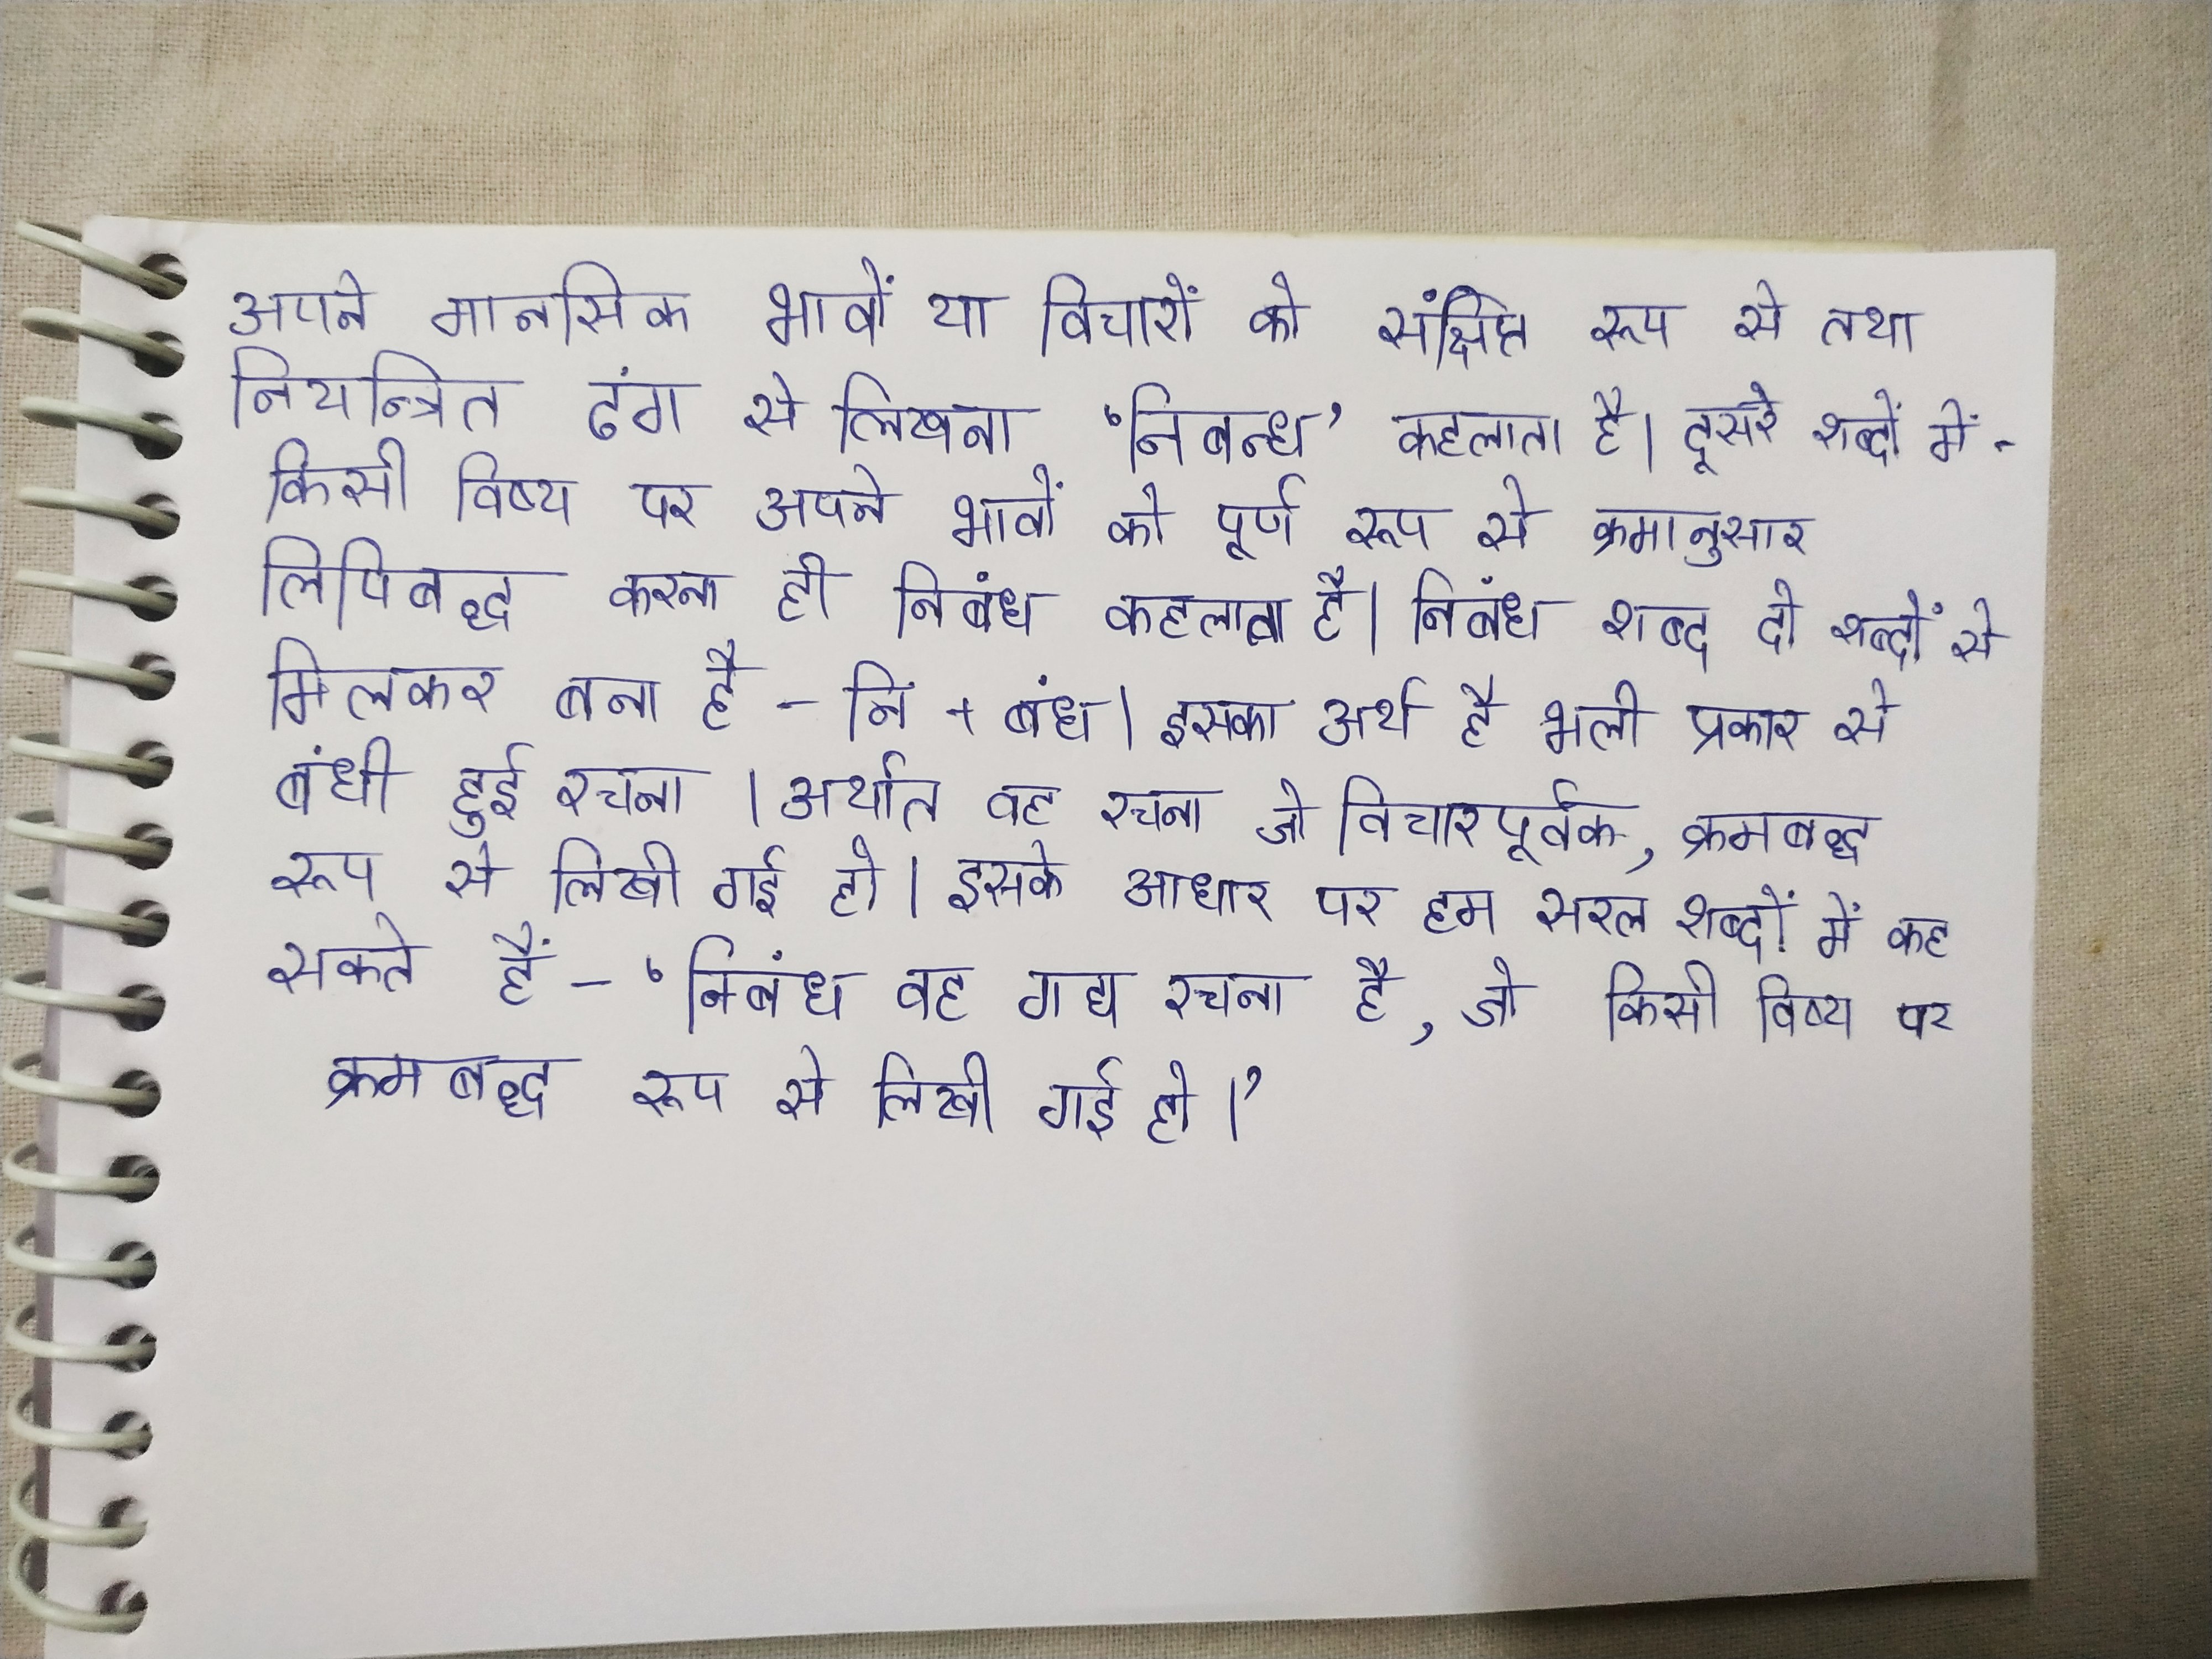 अपने मानसिक भावों या विचारों को संक्षिप्त रूप से तथा
नियन्त्रित ढंग से लिखना 'निबन्ध' कहलाता है। दूसरे शब्दों में -
किसी विषय पर अपने भावों को पूर्ण रूप से क्रमानुसार
लिपिबद्ध करना ही निबंध कहलाता है। निबंध शब्द दो शब्दों से
मिलकर बना है - नि + बंध। इसका अर्थ है भली प्रकार से
बंधी हुई रचना । अर्थात वह रचना जो विचारपूर्वक, क्रमबद्ध
रूप से लिखी गई हो। इसके आधार पर हम सरल शब्दों में कह
सकते हैं - 'निबंध वह गद्य रचना है, जो किसी विषय पर
क्रमबद्ध रूप से लिखी गई हो।'